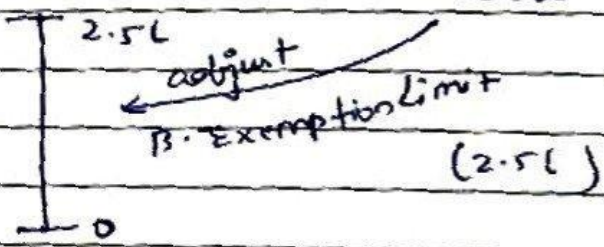 2.5L
adjust
B. Exemption Limit
(2.5L)
0